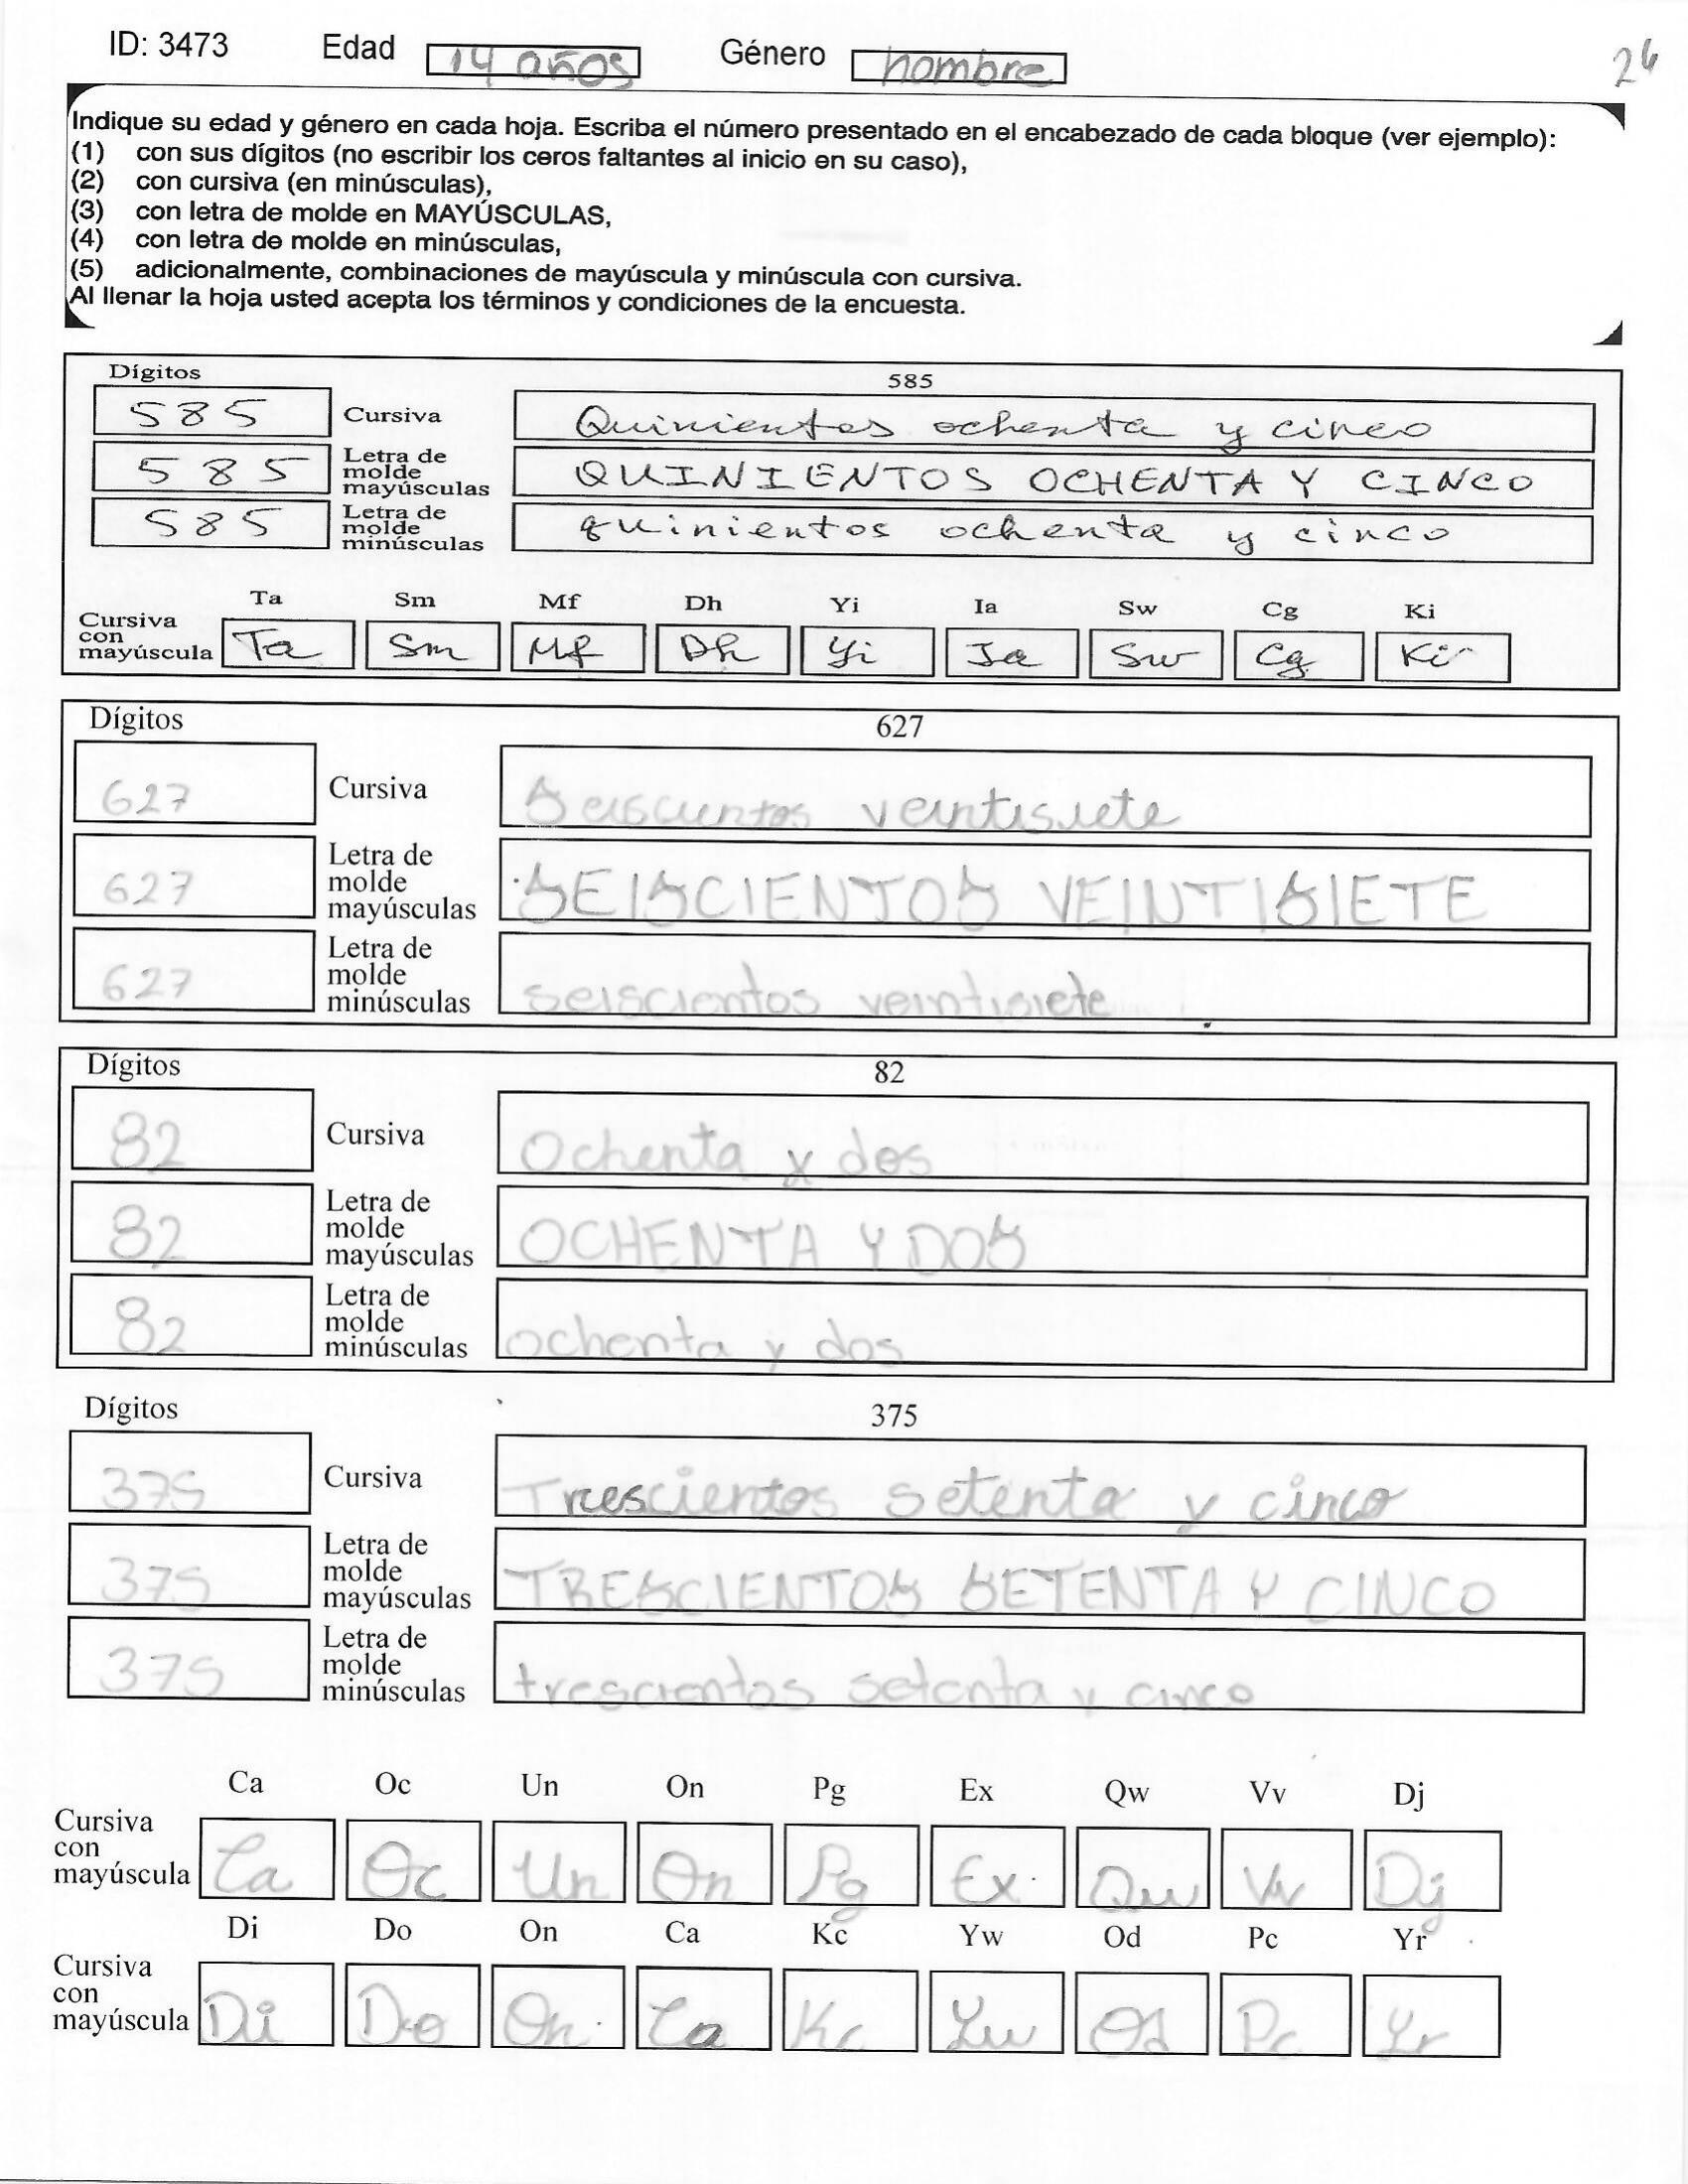 ID: 3473 Edad 14 años Género hombre 26
Indique su edad y género en cada hoja. Escriba el número presentado en el encabezado de cada bloque (ver ejemplo):
(1) con sus dígitos (no escribir los ceros faltantes al inicio en su caso),
(2) con cursiva (en minúsculas),
(3) con letra de molde en MAYÚSCULAS,
(4) con letra de molde en minúsculas,
(5) adicionalmente, combinaciones de mayúscula y minúscula con cursiva.
Al llenar la hoja usted acepta los términos y condiciones de la encuesta.
Dígitos 585
585 Cursiva Quinientos ochenta y cinco
585 Letra de molde mayúsculas QUINIENTOS OCHENTA Y CINCO
585 Letra de molde minúsculas quinientos ochenta y cinco
Ta Sm Mf Dh Yi Ia Sw Cg Ki
Cursiva con mayúscula Ta Sm Mf Dh Yi Ia Sw Cg Ki
Dígitos 627
627 Cursiva Seiscientos veintisiete
627 Letra de molde mayúsculas SEISCIENTOS VEINTISIETE
627 Letra de molde minúsculas seiscientos veintisiete
Dígitos 82
82 Cursiva Ochenta y dos
82 Letra de molde mayúsculas OCHENTA Y DOS
82 Letra de molde minúsculas ochenta y dos
Dígitos 375
375 Cursiva Trescientos setenta y cinco
375 Letra de molde mayúsculas TRESCIENTOS SETENTA Y CINCO
375 Letra de molde minúsculas trescientos setenta y cinco
Ca Oc Un On Pg Ex Qw Vv Dj
Cursiva con mayúscula Ca Oc Un On Pg Ex Qw Vv Dj
Di Do On Ca Kc Yw Od Pc Yr
Cursiva con mayúscula Di Do On Ca Kc Yw Od Pc Yr